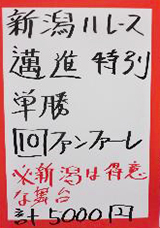 新潟11レース
邁進特別
単勝
10ファンファーレ
※新潟は得意
な舞台
計5000円